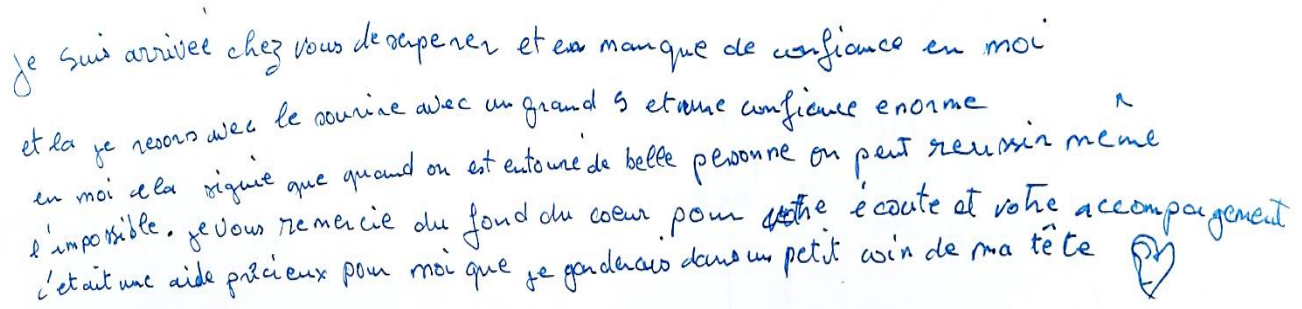 Je suis arriveé chez vous desesperer et en manque de confiance en moi
et la je resors avec le sourire avec un grand S et une confiance enorme
en moi cela signie que quand on est entouré de belle personne on peut reussir même
l'impossible. je vous remercie du fond du coeur pour votre écoute et votre accompagement
c'etait une aide précieux pour moi que je garderais dans un petit coin de ma tête